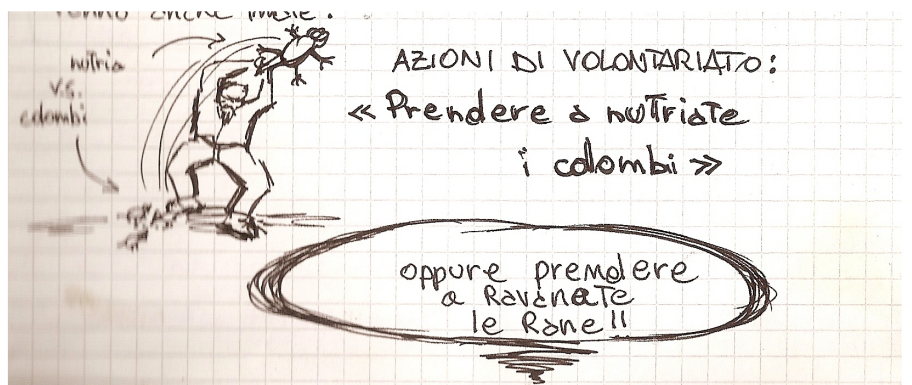 anche
nutria
v.s.
colombi
AZIONI DI VOLONTARIATO:
« Prendere a nutriate
i colombi »
oppure prendere
a Ravanate
le Rane!!